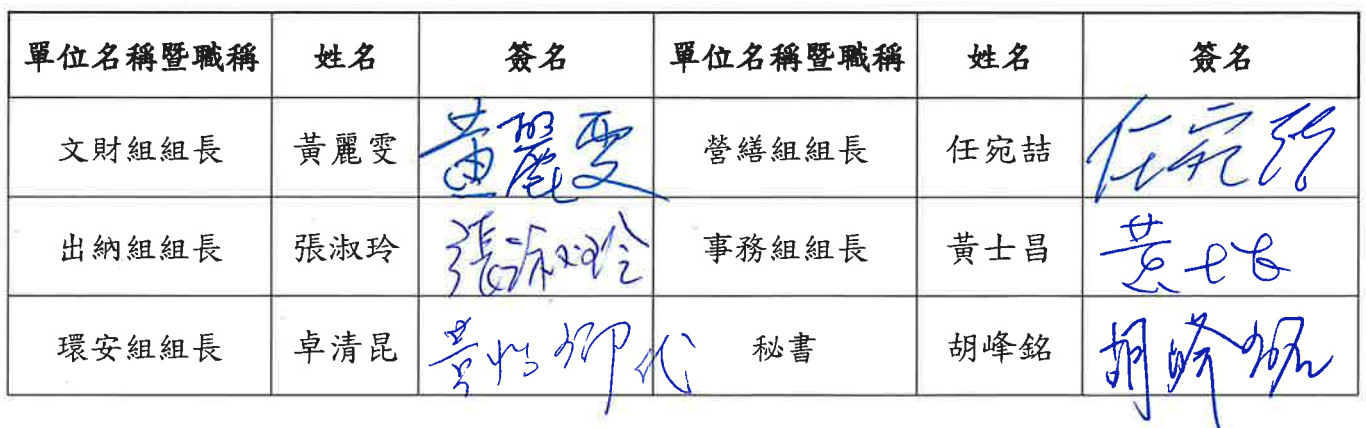 單位名稱暨職稱 姓名 簽名 單位名稱暨職稱 姓名 簽名
文財組組長 黃麗雯 黃麗雯 營繕組組長 任宛喆 任宛喆
出納組組長 張淑玲 張淑玲 事務組組長 黃士昌 黃士昌
環安組組長 卓清昆 黃 卿代 秘書 胡峰銘 胡峰銘